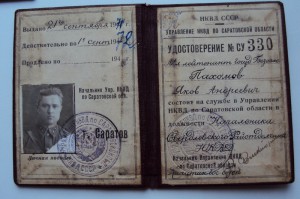 Выдано 21го сентября 194
Действительно по 1го сент 1942
Продлено по 194
Начальник Упр. НКВД
по Саратовской обл.
г. Саратов
Личная подпись
НКВД СССР
УПРАВЛЕНИЕ НКВД ПО САРАТОВСКОЙ ОБЛАСТИ
УДОСТОВЕРЕНИЕ № СУ 330
лейтенант госуд.
Пахомов
Яков Андреевич
состоит на службе в Управлении
НКВД по Саратовской области в
должности Начальника
Начальник Управления НКВД
по Саратовской области